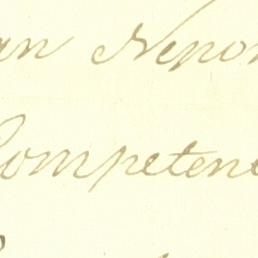 an Nepom
Competenc